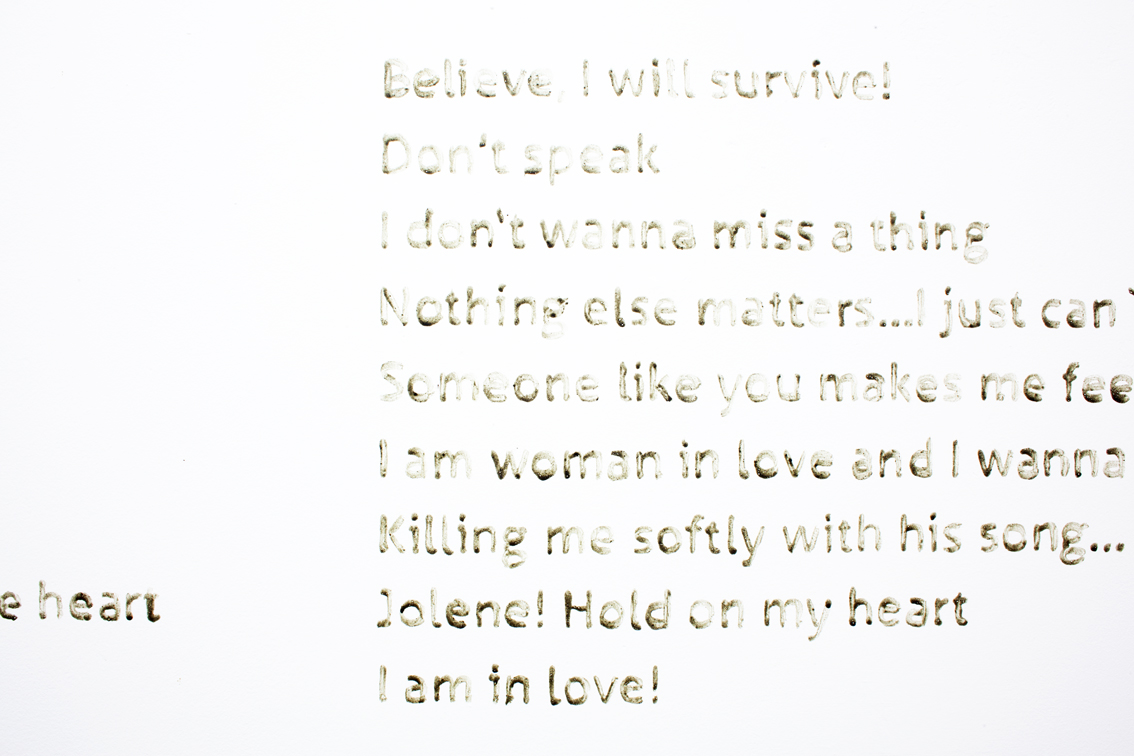 Believe, I will survive!
Don't speak
I don't wanna miss a thing
Nothing else matters...I just can'
Someone like you makes me fee
I am woman in love and I wanna
Killing me softly with his song...
e heart
Jolene! Hold on my heart
I am in love!